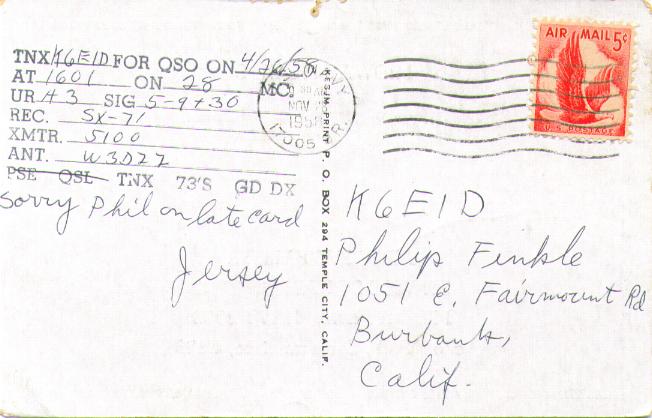 TNX K6EID FOR QSO ON 4/26/58
AT 1601 ON 28 MC.
UR A3 SIG 5-9+30
REC. SX-71
XMTR. 5100
ANT. W3DZZ
PSE QSL TNX 73'S GD DX
Sorry Phil on late card
Jersey
KESJM-PRINT P. O. BOX 294 TEMPLE CITY, CALIF.
NAVY
NOV
1958
17005 BR.
AIR MAIL 5¢
U.S. POSTAGE
K6EID
Philip Finkle
1051 E. Fairmount Rd
Burbank,
Calif.